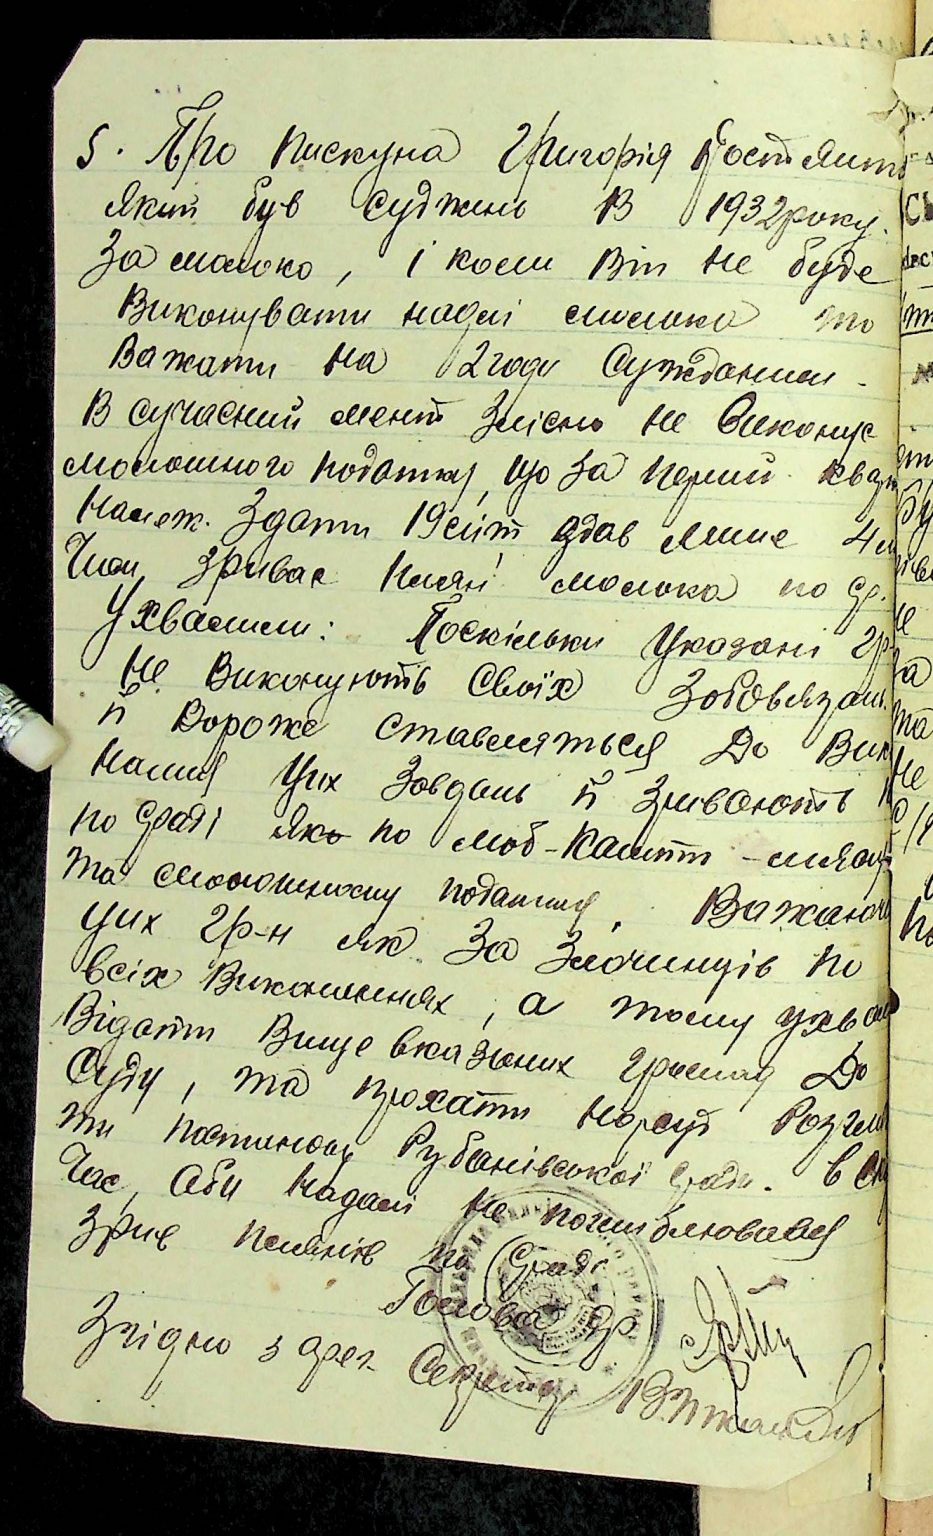 5. Про Пискуна Григорія
який був суджень в 1932 року.
За молоко, і коли Він не буде
Виконувати надалі молоко то
Важати на 2 году Сужданими.
В сучасний мент злісно не Виконує
молошного податку, що за перший
Належ. Здати 19 літ здав лише 4
Чим зриває пляні молока по ср.
Ухвалили: Поскільки Указані гр
Не Виконують Своїх Зобовязань
й Вороже ставляться До
нання Цих Завдань й Зривають
по сраді як по моб-каштт
та молошному податку. Важаючи
цих гр-н як За Злочинців по
всіх Виконаннях, а тому
Відати Вище вказаних громад До
Суду, та прохати Нарсуд
ти постанову Рубанівської сради. В
Час, Аби надалі не поглиблювався
Зрив плянів по Сраді
Голова ср
Згідно з орег. Секретар